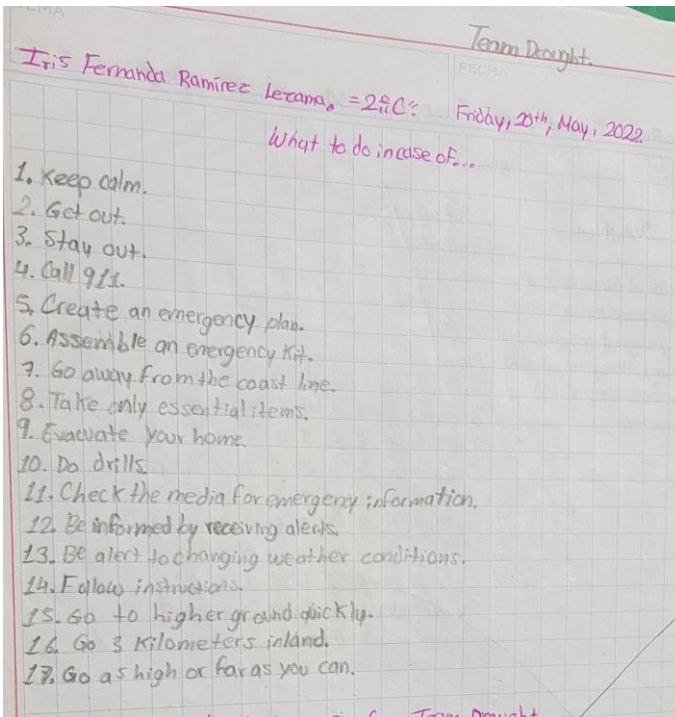 Team Drought.
FECHA
Iris Fernanda Ramirez Lezama. =2º"C". Friday, 20th, May, 2022.
What to do in case of...
1. Keep calm.
2. Get out.
3. Stay out.
4. Call 911.
5. Create an emergency plan.
6. Assemble an energency Kit.
7. Go away from the coast line.
8. Take only essential items.
9. Evacuate your home.
10. Do drills.
11. Check the media for emergency information.
12. Be informed by receiving alerts.
13. Be alert to changing weather conditions.
14. Follow instructions.
15. Go to higher ground quickly.
16. Go 3 Kilometers inland.
17. Go as high or far as you can.
Team Drought